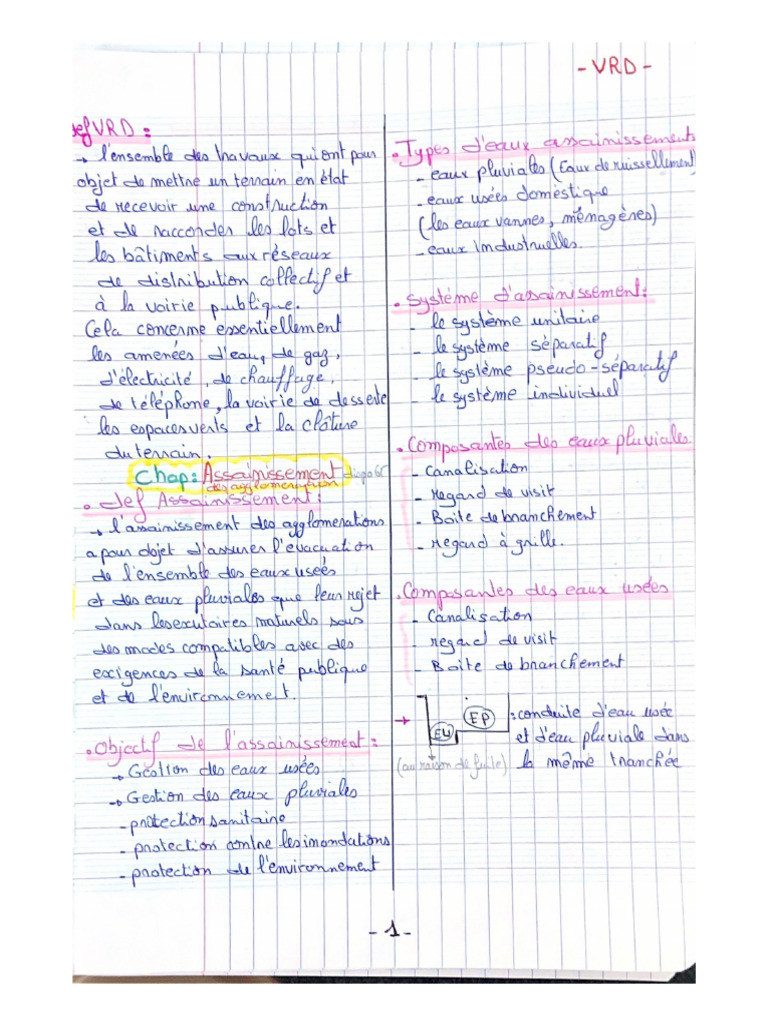 - VRD -
def VRD :
→ l'ensemble des travaux qui ont pour
objet de mettre un terrain en état
de recevoir une construction
et de raccorder les lots et
les bâtiments aux réseaux
de distribution collectif et
à la voirie publique.
Cela concerne essentiellement
les amenées d'eau, de gaz,
d'électricité, de chauffage,
de téléphone, la voirie de desserte
les espaces verts et la clôture
du terrain.
Chap : Assainissement
des agglomération
. def Assainissement :
→ l'assainissement des agglomerations
a pour objet d'assurer l'évacuation
de l'ensemble des eaux usées
et des eaux pluviales que leur rejet
dans les exutoires naturels sous
des modes compatibles avec des
exigences de la santé publique
et de l'environnement.
. Objectif de l'assainissement :
→ Gestion des eaux usées
→ Gestion des eaux pluviales
- protection sanitaire
- protection contre les inondations
- protection de l'environnement
. Types d'eaux assainissement
- eaux pluviales (Eaux de ruissellement)
- eaux usées domestique
(les eaux vannes, ménagères)
- eaux Industruelles.
. Système d'assainissement :
- le système unitaire
- le système séparatif
- le système pseudo-séparatif
- le système individuel
. Composantes des eaux pluviales
- Canalisation
- Regard de visit
- Boite de branchement
- Regard à grille.
. Composantes des eaux usées
- Canalisation
- regard de visit
- Boite de branchement
→ EU EP : conduite d'eau usée
et d'eau pluviale dans
la même tranchée
(au raison de fuite)
- 1 -